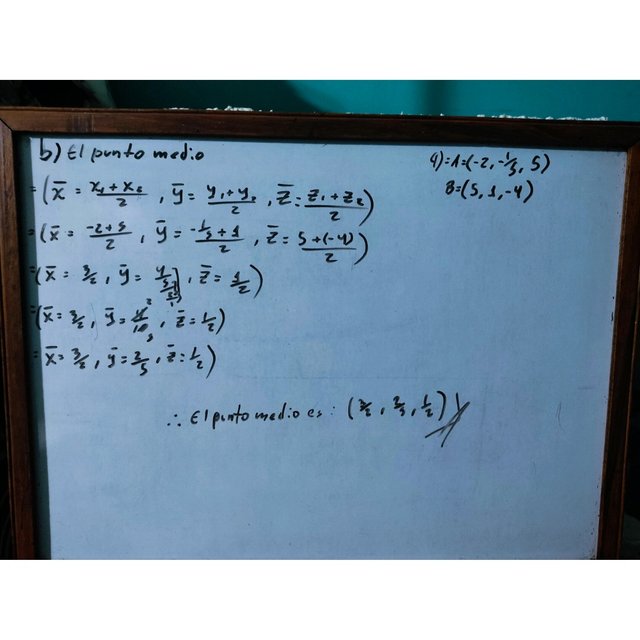 b) El punto medio
a) = A = (-2, -1/5, 5)
B = (5, 1, -4)
= (x̄ = x₁ + x₂/2, ȳ = y₁ + y₂/2, z̄ = z₁ + z₂/2)
= (x̄ = -2+5/2, ȳ = -1/5 + 1/2, z̄ = 5+(-4)/2)
= (x̄ = 3/2, ȳ = 4/5/2/1, z̄ = 1/2)
= (x̄ = 3/2, ȳ = 4/10, z̄ = 1/2)
= x̄ = 3/2, ȳ = 2/5, z̄ = 1/2)
∴ El punto medio es: (3/2, 2/5, 1/2)